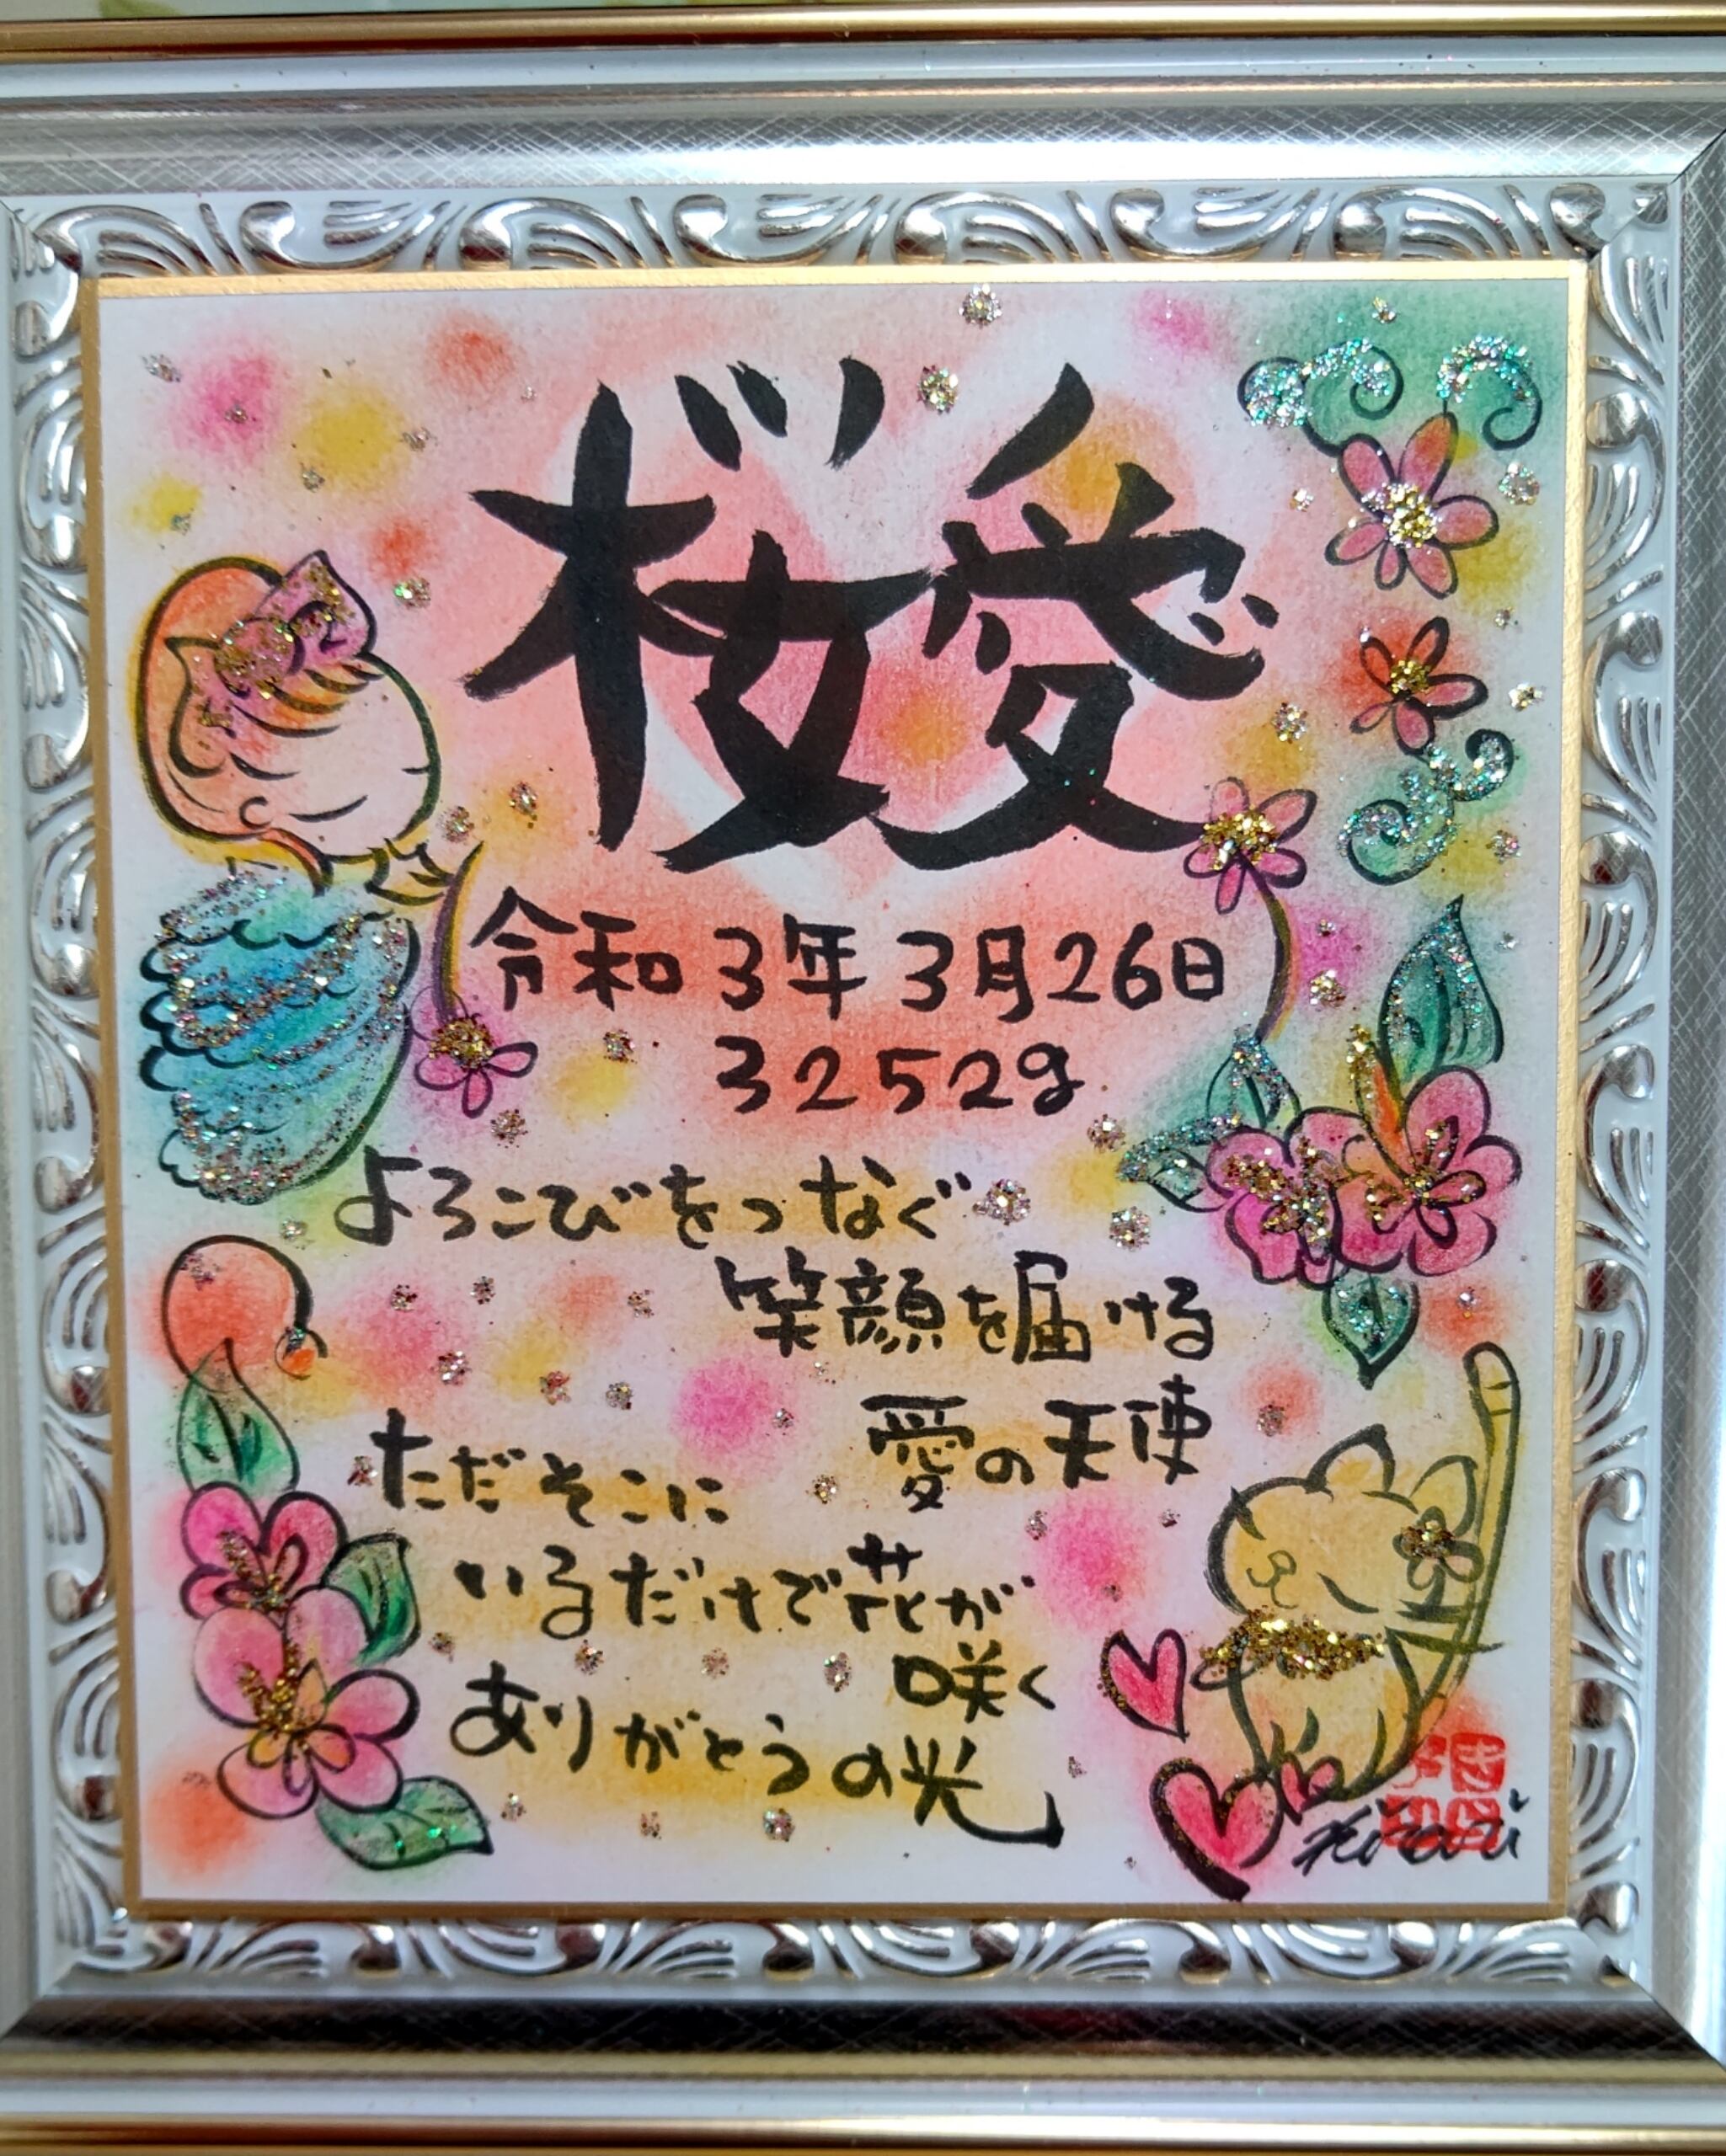 桜愛
令和3年3月26日
3252g
よろこびをつなぐ
笑顔を届ける
愛の天使
ただそこに
いるだけで花が
咲く
ありがとうの光